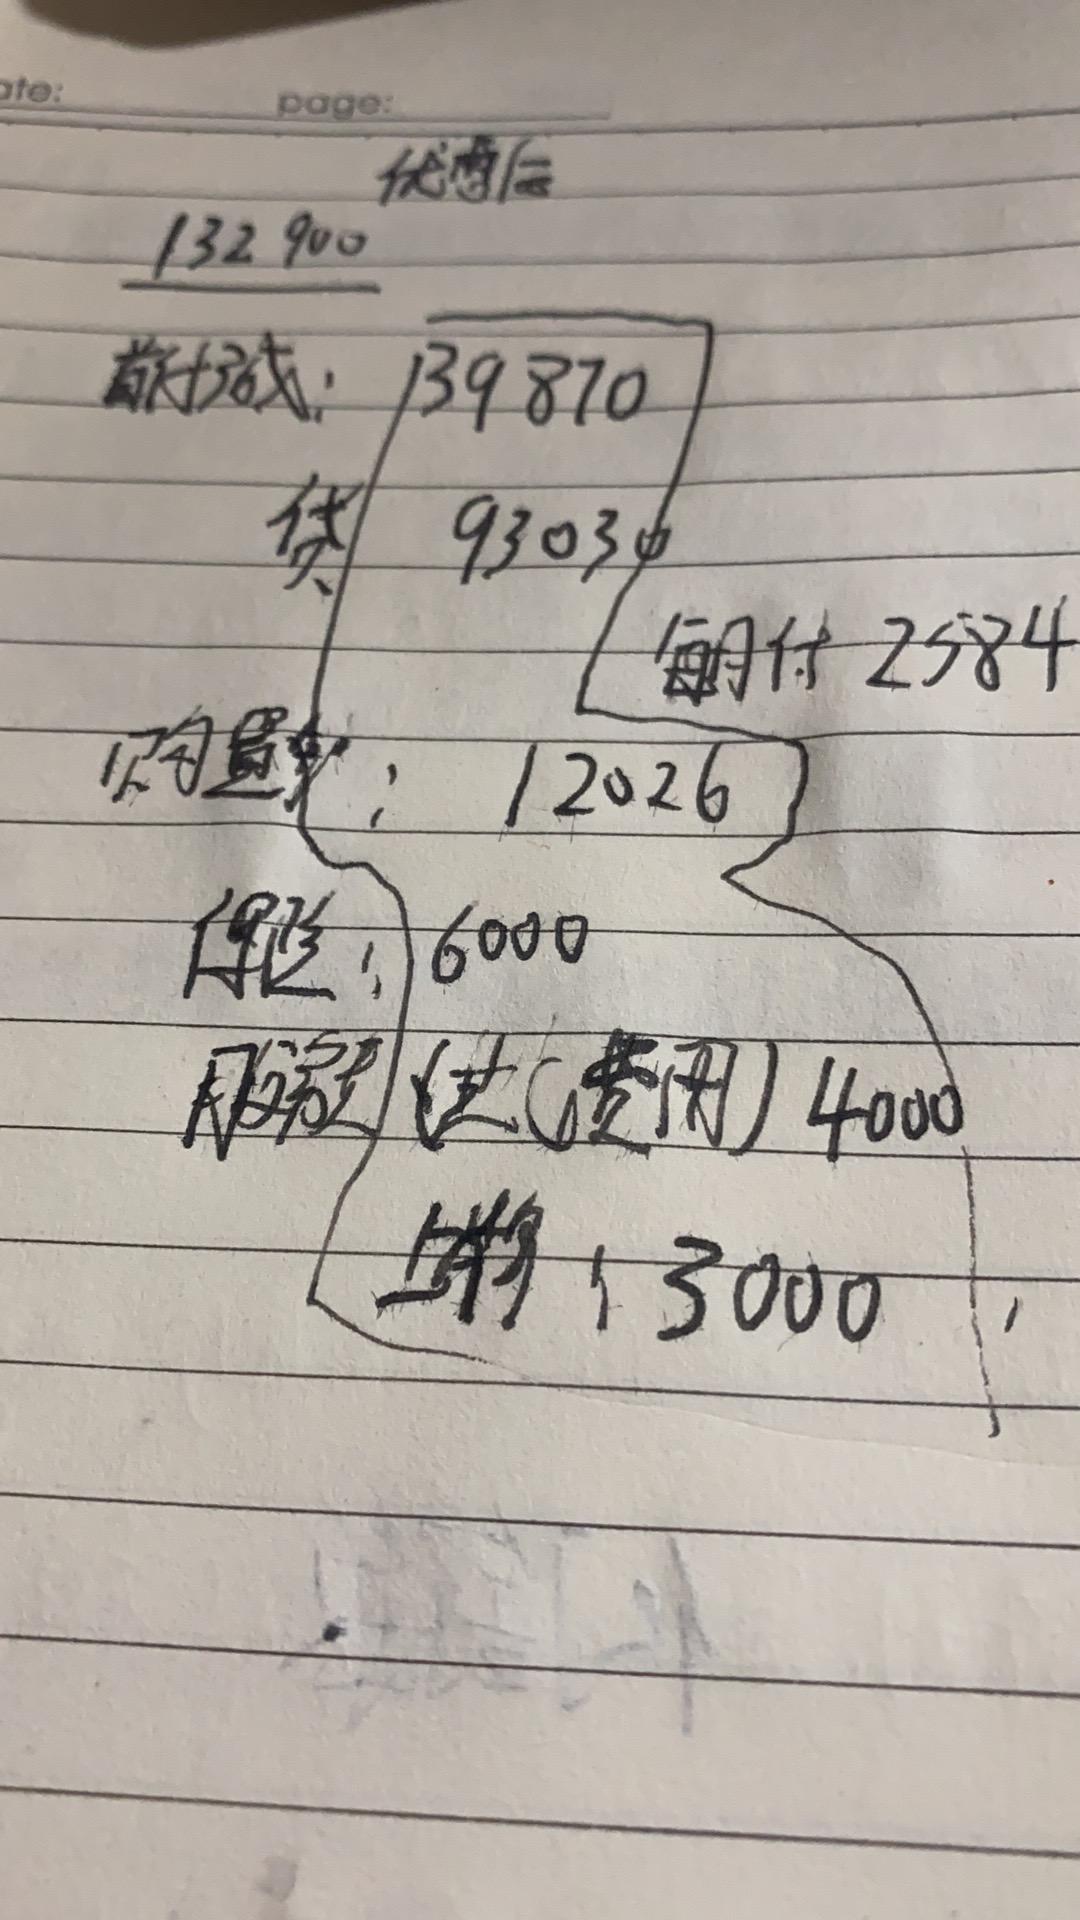 ate: page:
优惠后
132 900
首付3成: 39870
贷 93030
每月付 2584
购置: 12026
保险: 6000
服务 (费用) 4000
上牌: 3000